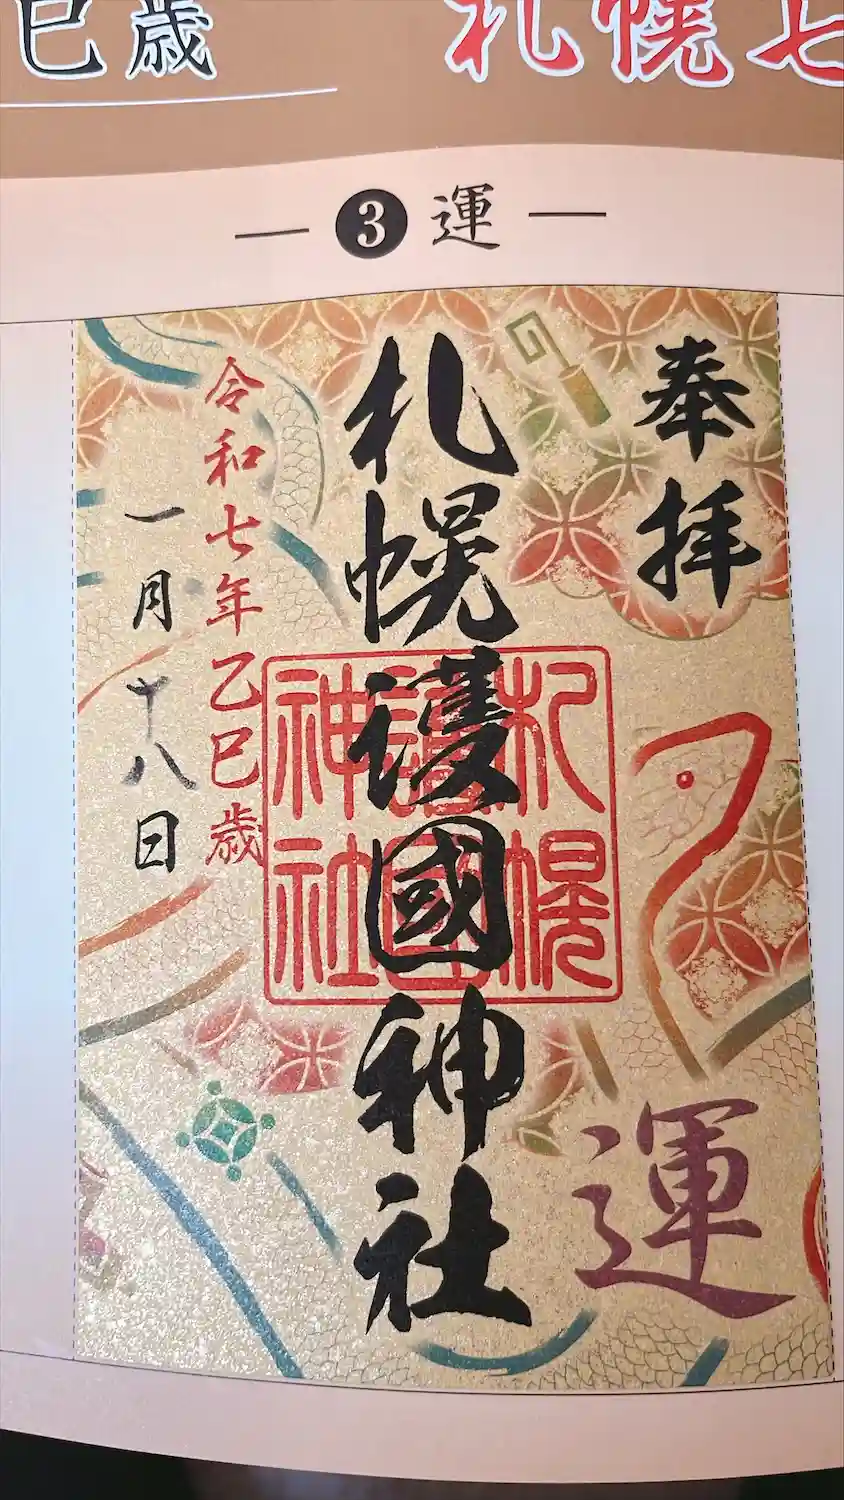 巳歳
札幌七
3 運
奉拝
札幌護國神社
令和七年乙巳歳
一月十八日
札幌護國神社
運